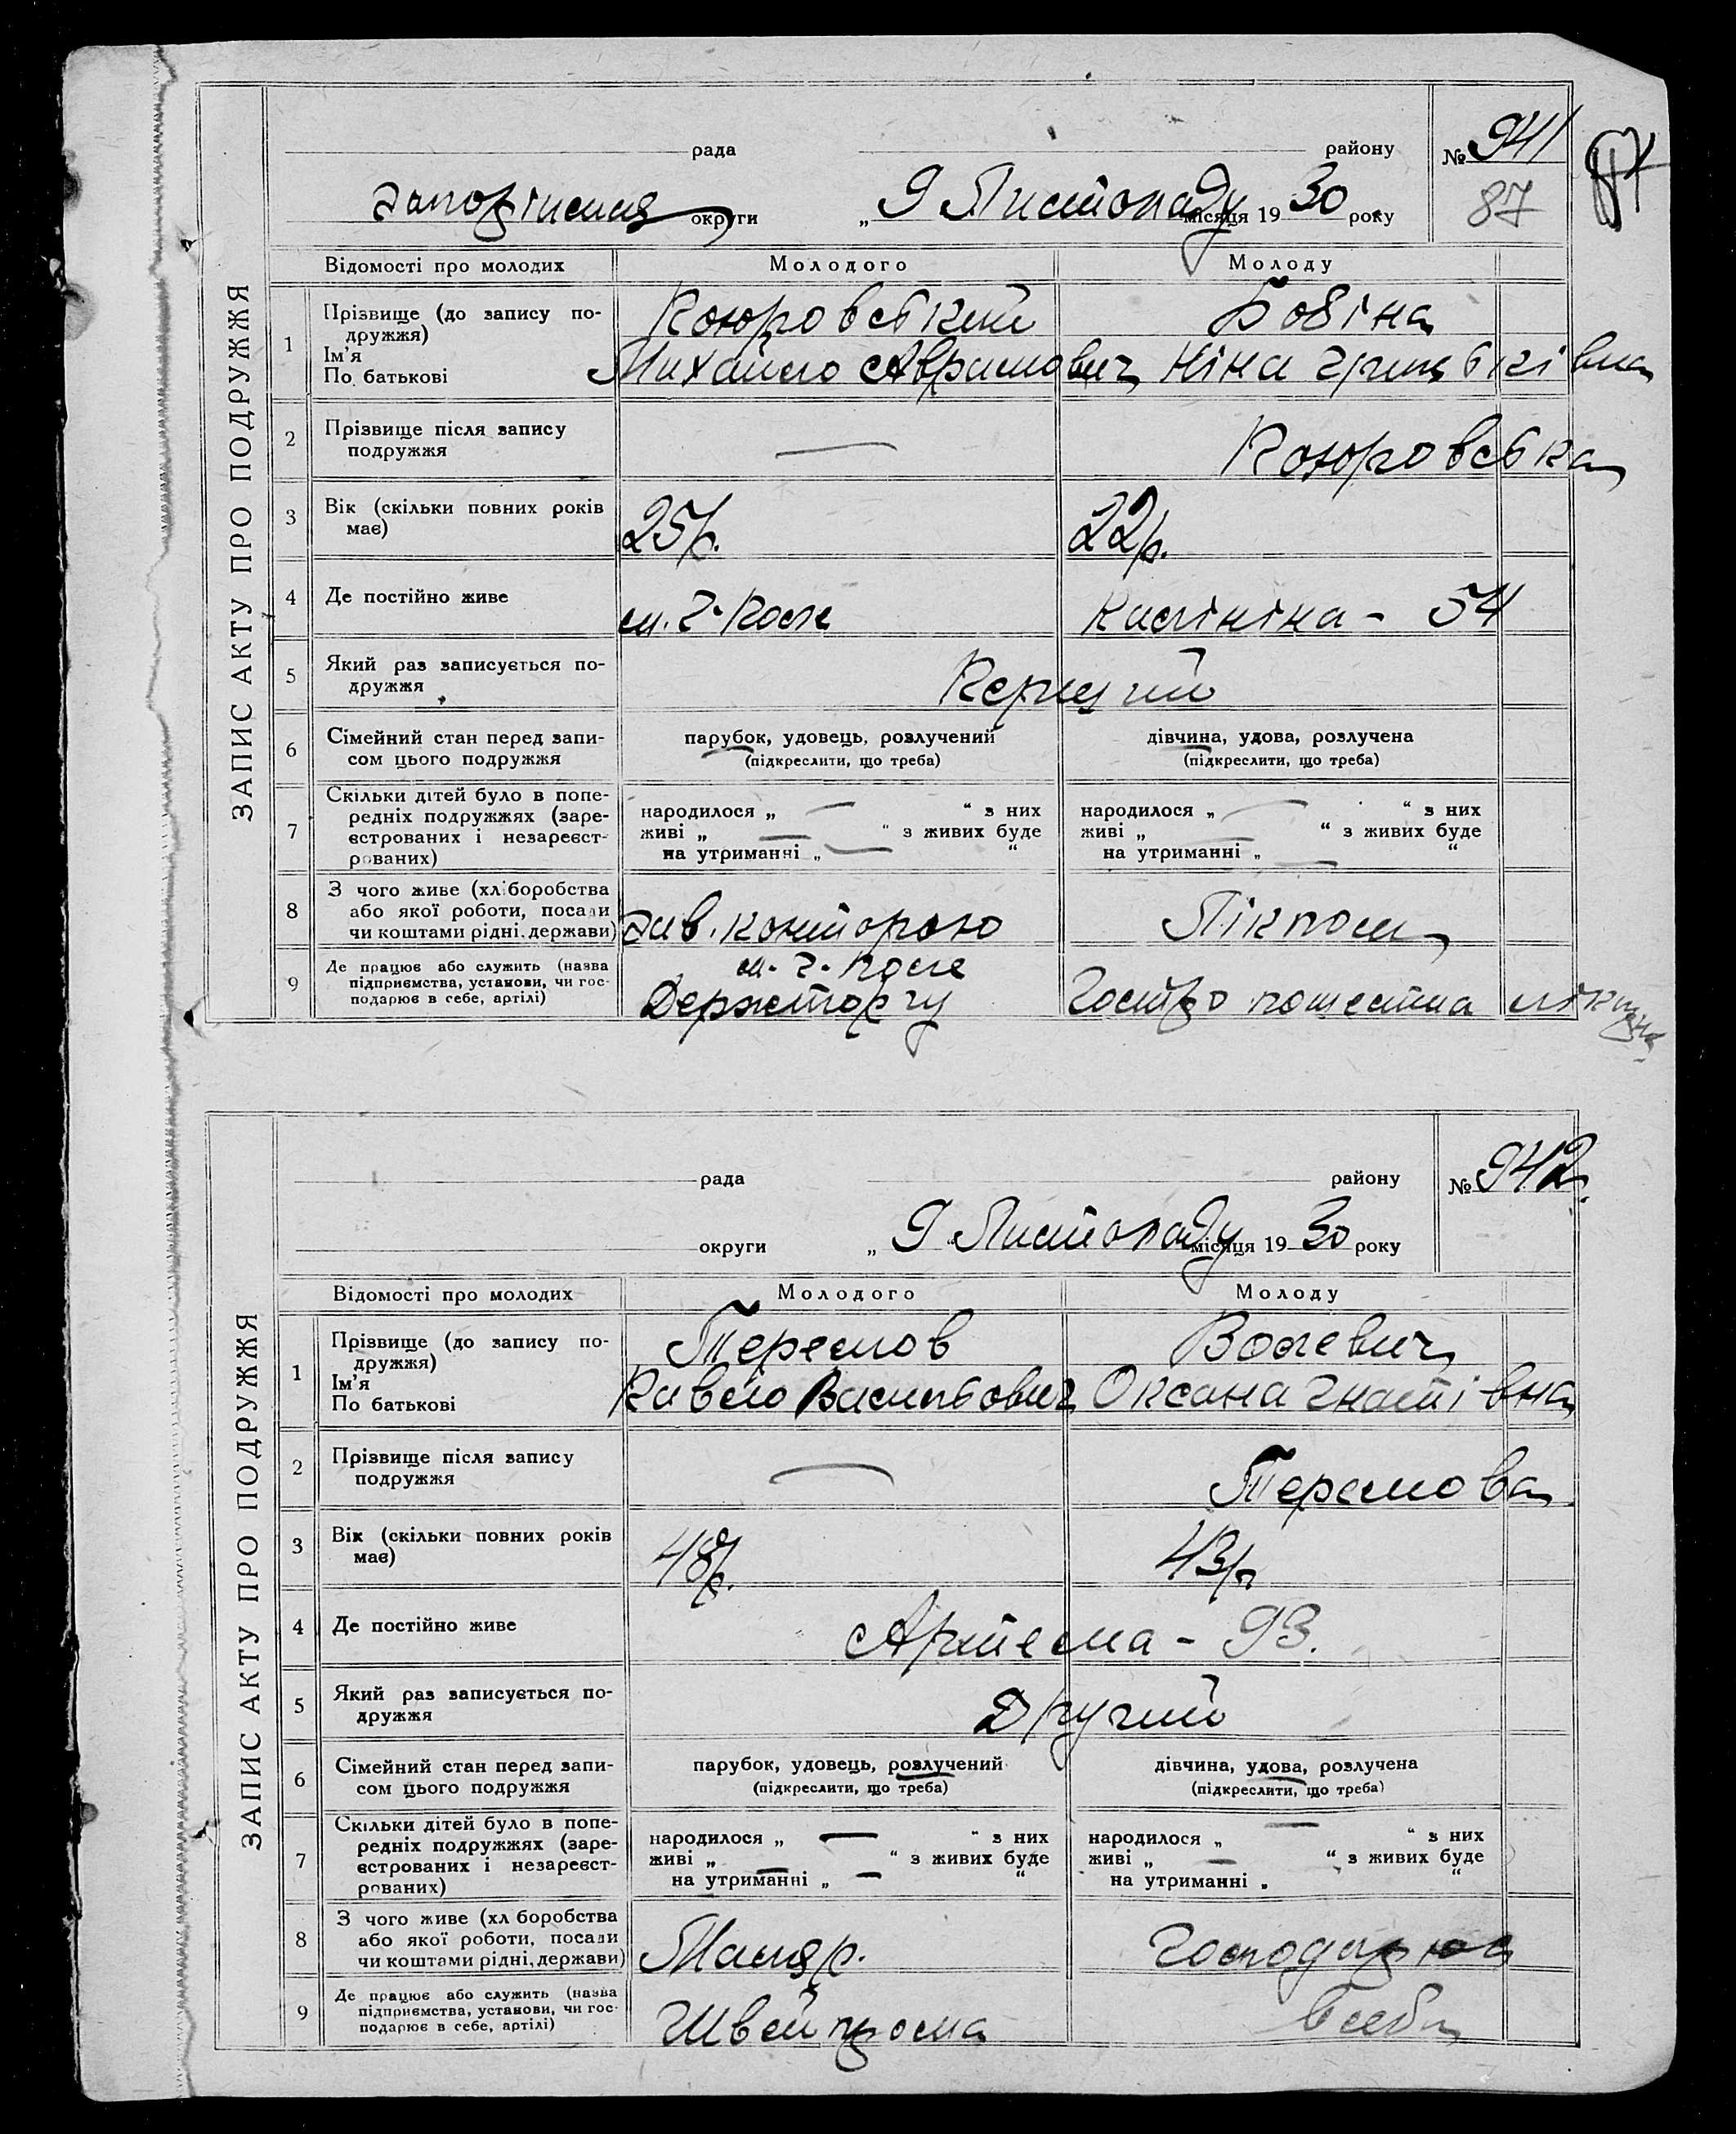 ЗАПИС АКТУ ПРО ПОДРУЖЖЯ
рада району № 941
округи „ 9 Листопаду місяця 19 30 року 87
Відомості про молодих Молодого Молоду
1 Прізвище (до запису по- Бовіна
дружжя)
Ім'я Михайло Аврамович Ніна
По батькові
2 Прізвище після запису —
подружжя
3 Вік (скільки повних років 25 р. 22 р.
має)
4 Де постійно живе Калініна - 54
5 Який раз записується по-
дружжя Перший
6 Сімейний стан перед запи- парубок, удовець, розлучений дівчина, удова, розлучена
сом цього подружжя (підкреслити, що треба) (підкреслити, що треба)
7 Скільки дітей було в попе-
редніх подружжях (заре- народилося „ — “ з них народилося „ — “ з них
єстрованих і незареєст- живі „ — “ з живих буде живі „ — “ з живих буде
рованих) на утриманні „ — “ на утриманні „ — “
8 З чого живе (хліборобства
або якої роботи, посади
чи коштами рідні, держави) Зав. конторою Лікпом
9 Де працює або служить (назва
підприємства, установи, чи гос-
подарює в себе, артілі) Держторгу
ЗАПИС АКТУ ПРО ПОДРУЖЖЯ
рада району № 942.
округи „ 9 Листопаду місяця 19 30 року
Відомості про молодих Молодого Молоду
1 Прізвище (до запису по-
дружжя)
Ім'я Павло Васильович Оксана Гнатівна
По батькові
2 Прізвище після запису —
подружжя
3 Вік (скільки повних років 48 р. 43 р.
має)
4 Де постійно живе Артема - 93.
5 Який раз записується по-
дружжя Другий
6 Сімейний стан перед запи- парубок, удовець, розлучений дівчина, удова, розлучена
сом цього подружжя (підкреслити, що треба) (підкреслити, що треба)
7 Скільки дітей було в попе-
редніх подружжях (заре- народилося „ — “ з них народилося „ — “ з них
єстрованих і незареєст- живі „ — “ з живих буде живі „ — “ з живих буде
рованих) на утриманні „ — “ на утриманні „ “
8 З чого живе (хліборобства
або якої роботи, посади
чи коштами рідні, держави) Маляр.
9 Де працює або служить (назва
підприємства, установи, чи гос-
подарює в себе, артілі) Швейпрома